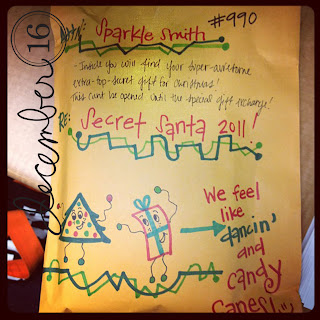 december 16
Attn: Sparkle Smith
#990
- Inside you will find your super-awesome
extra-top-secret gift for Christmas!
This can't be opened until the special gift exchange!
Re: Secret Santa 2011!
We feel
like
dancin'
and
candy
canes!